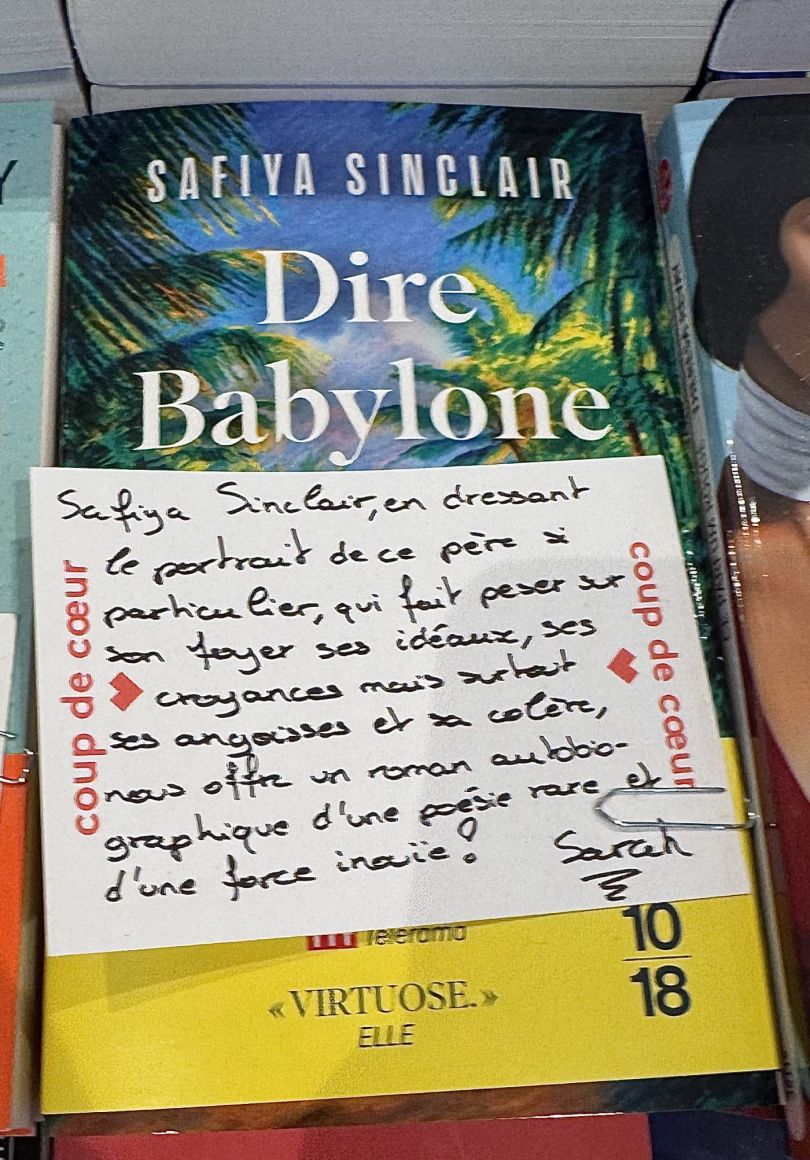 SAFIYA SINCLAIR
Dire
Babylone
Safiya Sinclair, en dressant
le portrait de ce père si
particulier, qui fait peser sur
son foyer ses idéaux, ses
croyances mais surtout
ses angoisses et sa colère,
nous offre un roman autobio-
graphique d'une poésie rare et
d'une force inouïe !
Sarah
coup de cœur
coup de cœur
Télérama
10
18
« VIRTUOSE. »
ELLE